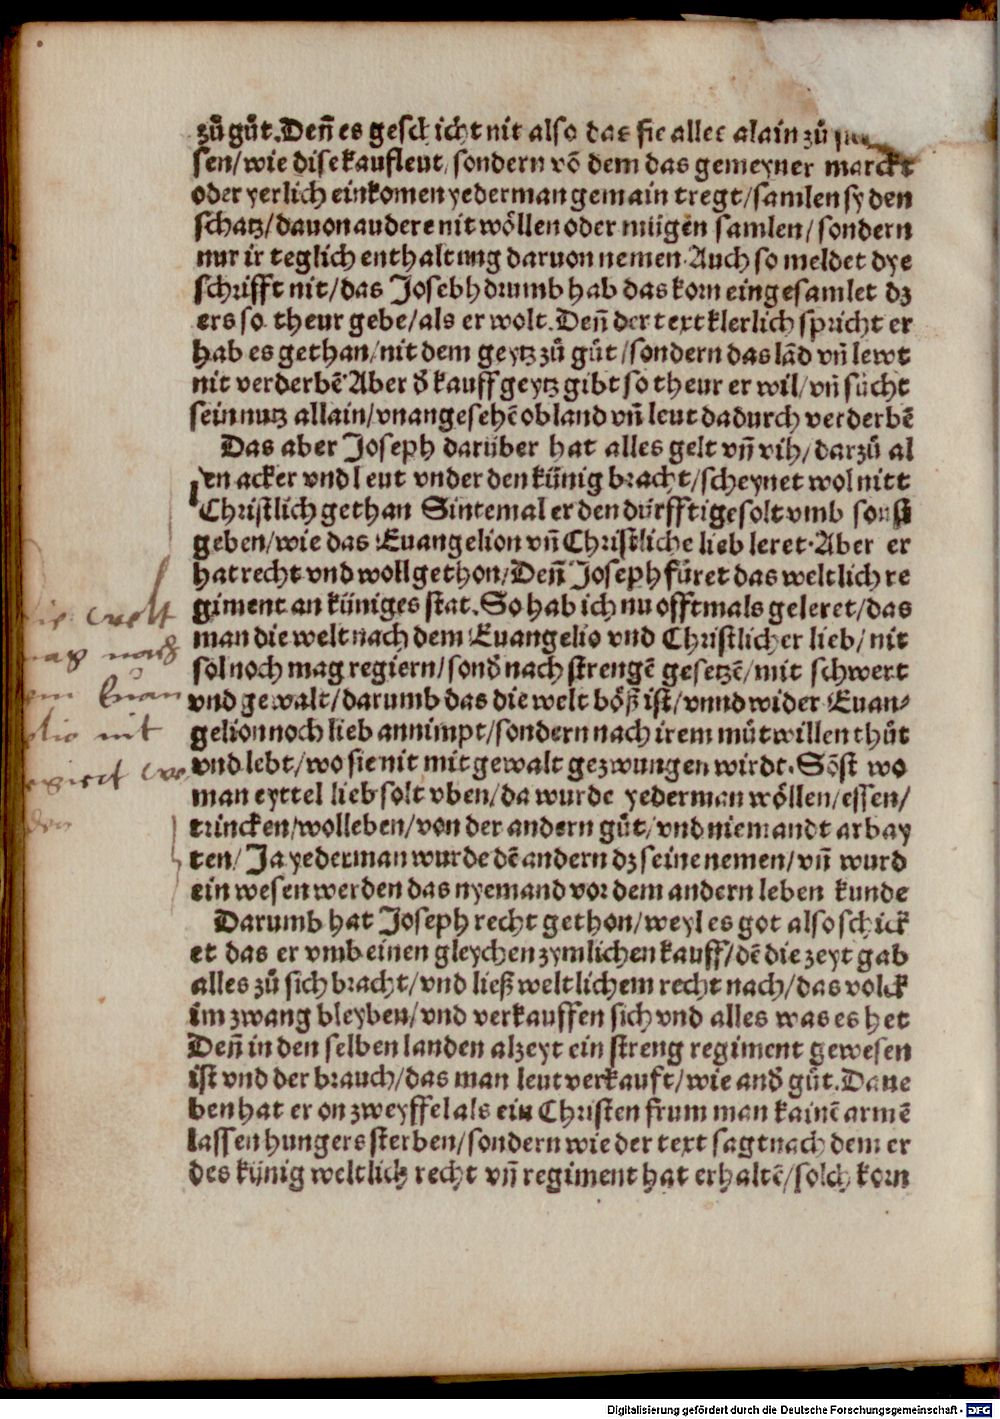 zů gůt. Deñ es geschicht nit also das sie alles alain zů
sen/wie dise kaufleut/sondern võ dem das gemeyner marckt
oder yerlich einkomen yederman gemain tregt/samlen sy den
schatz/dauon andere nit wöllen oder mügen samlen/sondern
nur ir teglich enthaltung daruon nemen. Auch so meldet dye
schrifft nit/das Josebh drumb hab das korn eingesamlet dz
ers so theur gebe/als er wolt. Deñ der text klerlich spricht er
hab es gethan/nit dem geytz zů gůt/sondern das lãd vñ lewt
nit verderbẽ Aber d̕ kauffgeytz gibt so theur er wil/vñ sücht
sein nutz allain/vnangesehẽ ob land vñ leut dadurch verderbẽ
Das aber Joseph darüber hat alles gelt vñ vih/darzů al
len acker vnd leut vnder den künig bracht/scheynet wol nitt
Christlich gethan Sintemal er den dürfftige solt vmb sonst
geben/wie das Euangelion vñ Christliche lieb leret. Aber er
hat recht vnd woll gethon/Deñ Joseph füret das weltlich re
giment an küniges stat. So hab ich nu offtmals geleret/das
man die welt nach dem Euangelio vnd Christlicher lieb/nit
sol noch mag regiern/sond̕ nach strengẽ gesetzẽ/mit schwert
vnd gewalt/darumb das die welt böß ist/vnnd wider Euan⸗
gelion noch lieb annimpt/sondern nach irem můtwillen thůt
vnd lebt/wo sie nit mit gewalt gezwungen wirdt. Sõst wo
man eyttel lieb solt vben/da wurde yederman wöllen/essen/
trincken/wolleben/von der andern gůt/vnd niemandt arbay
ten/Ja yederman wurde dẽ andern dz seine nemen/vñ wurd
ein wesen werden das nyemand vor dem andern leben kunde
Darumb hat Joseph recht gethon/weyl es got also schick
et das er vmb einen gleychen zymlichen kauff/dẽ die zeyt gab
alles zů sich bracht/vnd ließ weltlichem recht nach/das volck
im zwang bleyben/vnd verkauffen sich vnd alles was es het
Deñ in den selben landen alzeyt ein streng regiment gewesen
ist vnd der brauch/das man leut verkauft/wie and̕ gůt. Dane
ben hat er on zweyffel als ein Christen frum man kainẽ armẽ
lassen hungers sterben/sondern wie der text sagt nach dem er
des künig weltlich recht vñ regiment hat erhaltẽ/solch korn
die welt
mag nach
em Euan
elio nit
regiert we
den
Digitalisierung gefördert durch die Deutsche Forschungsgemeinschaft - DFG